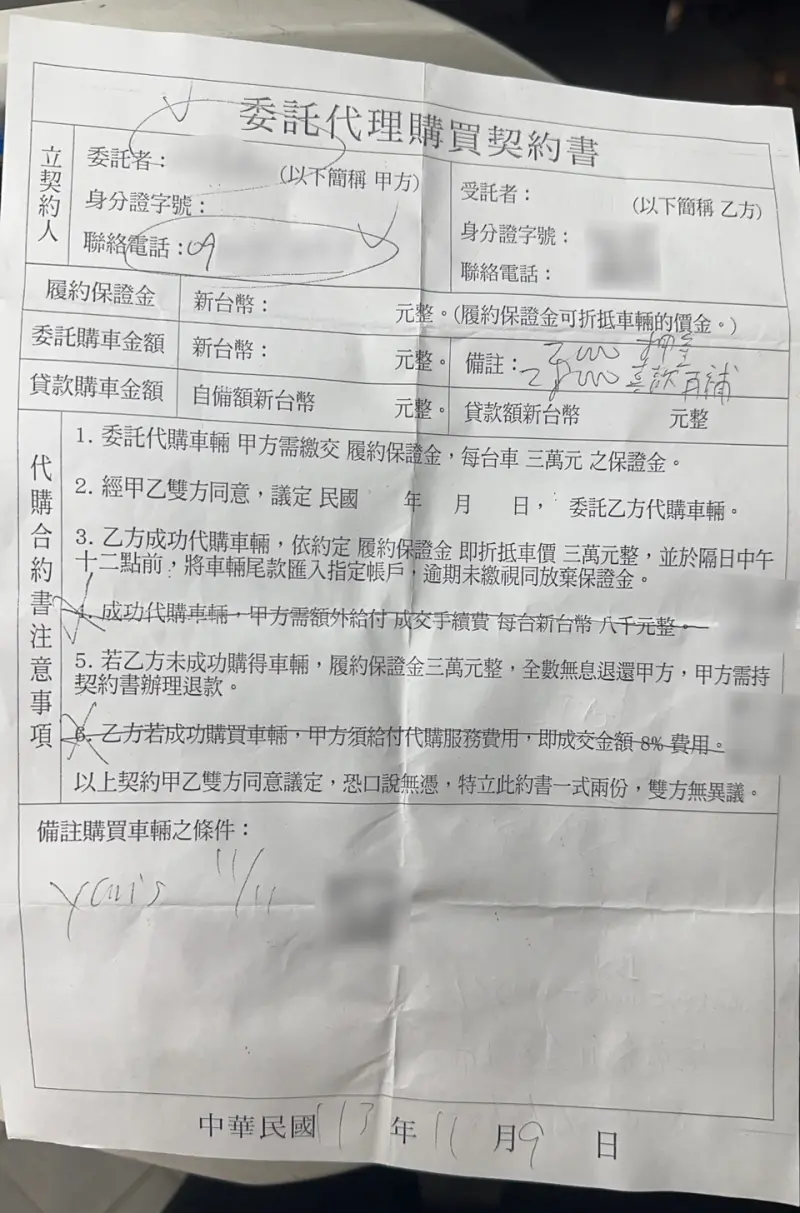 委託代理購買契約書
立契約人
委託者：
(以下簡稱 甲方)
身分證字號：
聯絡電話：09
受託者：
(以下簡稱 乙方)
身分證字號：
聯絡電話：
履約保證金
新台幣：
元整。(履約保證金可折抵車輛的價金。)
委託購車金額
新台幣：
元整。
備註：
2000 押金
28000 貸款再補
貸款購車金額
自備額新台幣
元整。
貸款額新台幣
元整
代購合約書注意事項
1. 委託代購車輛 甲方需繳交 履約保證金，每台車 三萬元 之保證金。
2. 經甲乙雙方同意，議定 民國 年 月 日， 委託乙方代購車輛。
3. 乙方成功代購車輛，依約定 履約保證金 即折抵車價 三萬元整，並於隔日中午
十二點前，將車輛尾款匯入指定帳戶，逾期未繳視同放棄保證金。
4. 成功代購車輛，甲方需額外給付 成交手續費 每台新台幣 八千元整。
5. 若乙方未成功購得車輛，履約保證金三萬元整，全數無息退還甲方，甲方需持
契約書辦理退款。
6. 乙方若成功購買車輛，甲方須給付代購服務費用，即成交金額 8% 費用。
以上契約甲乙雙方同意議定，恐口說無憑，特立此約書一式兩份，雙方無異議。
備註購買車輛之條件：
Yaris 11/11
中華民國 113 年 11 月 9 日